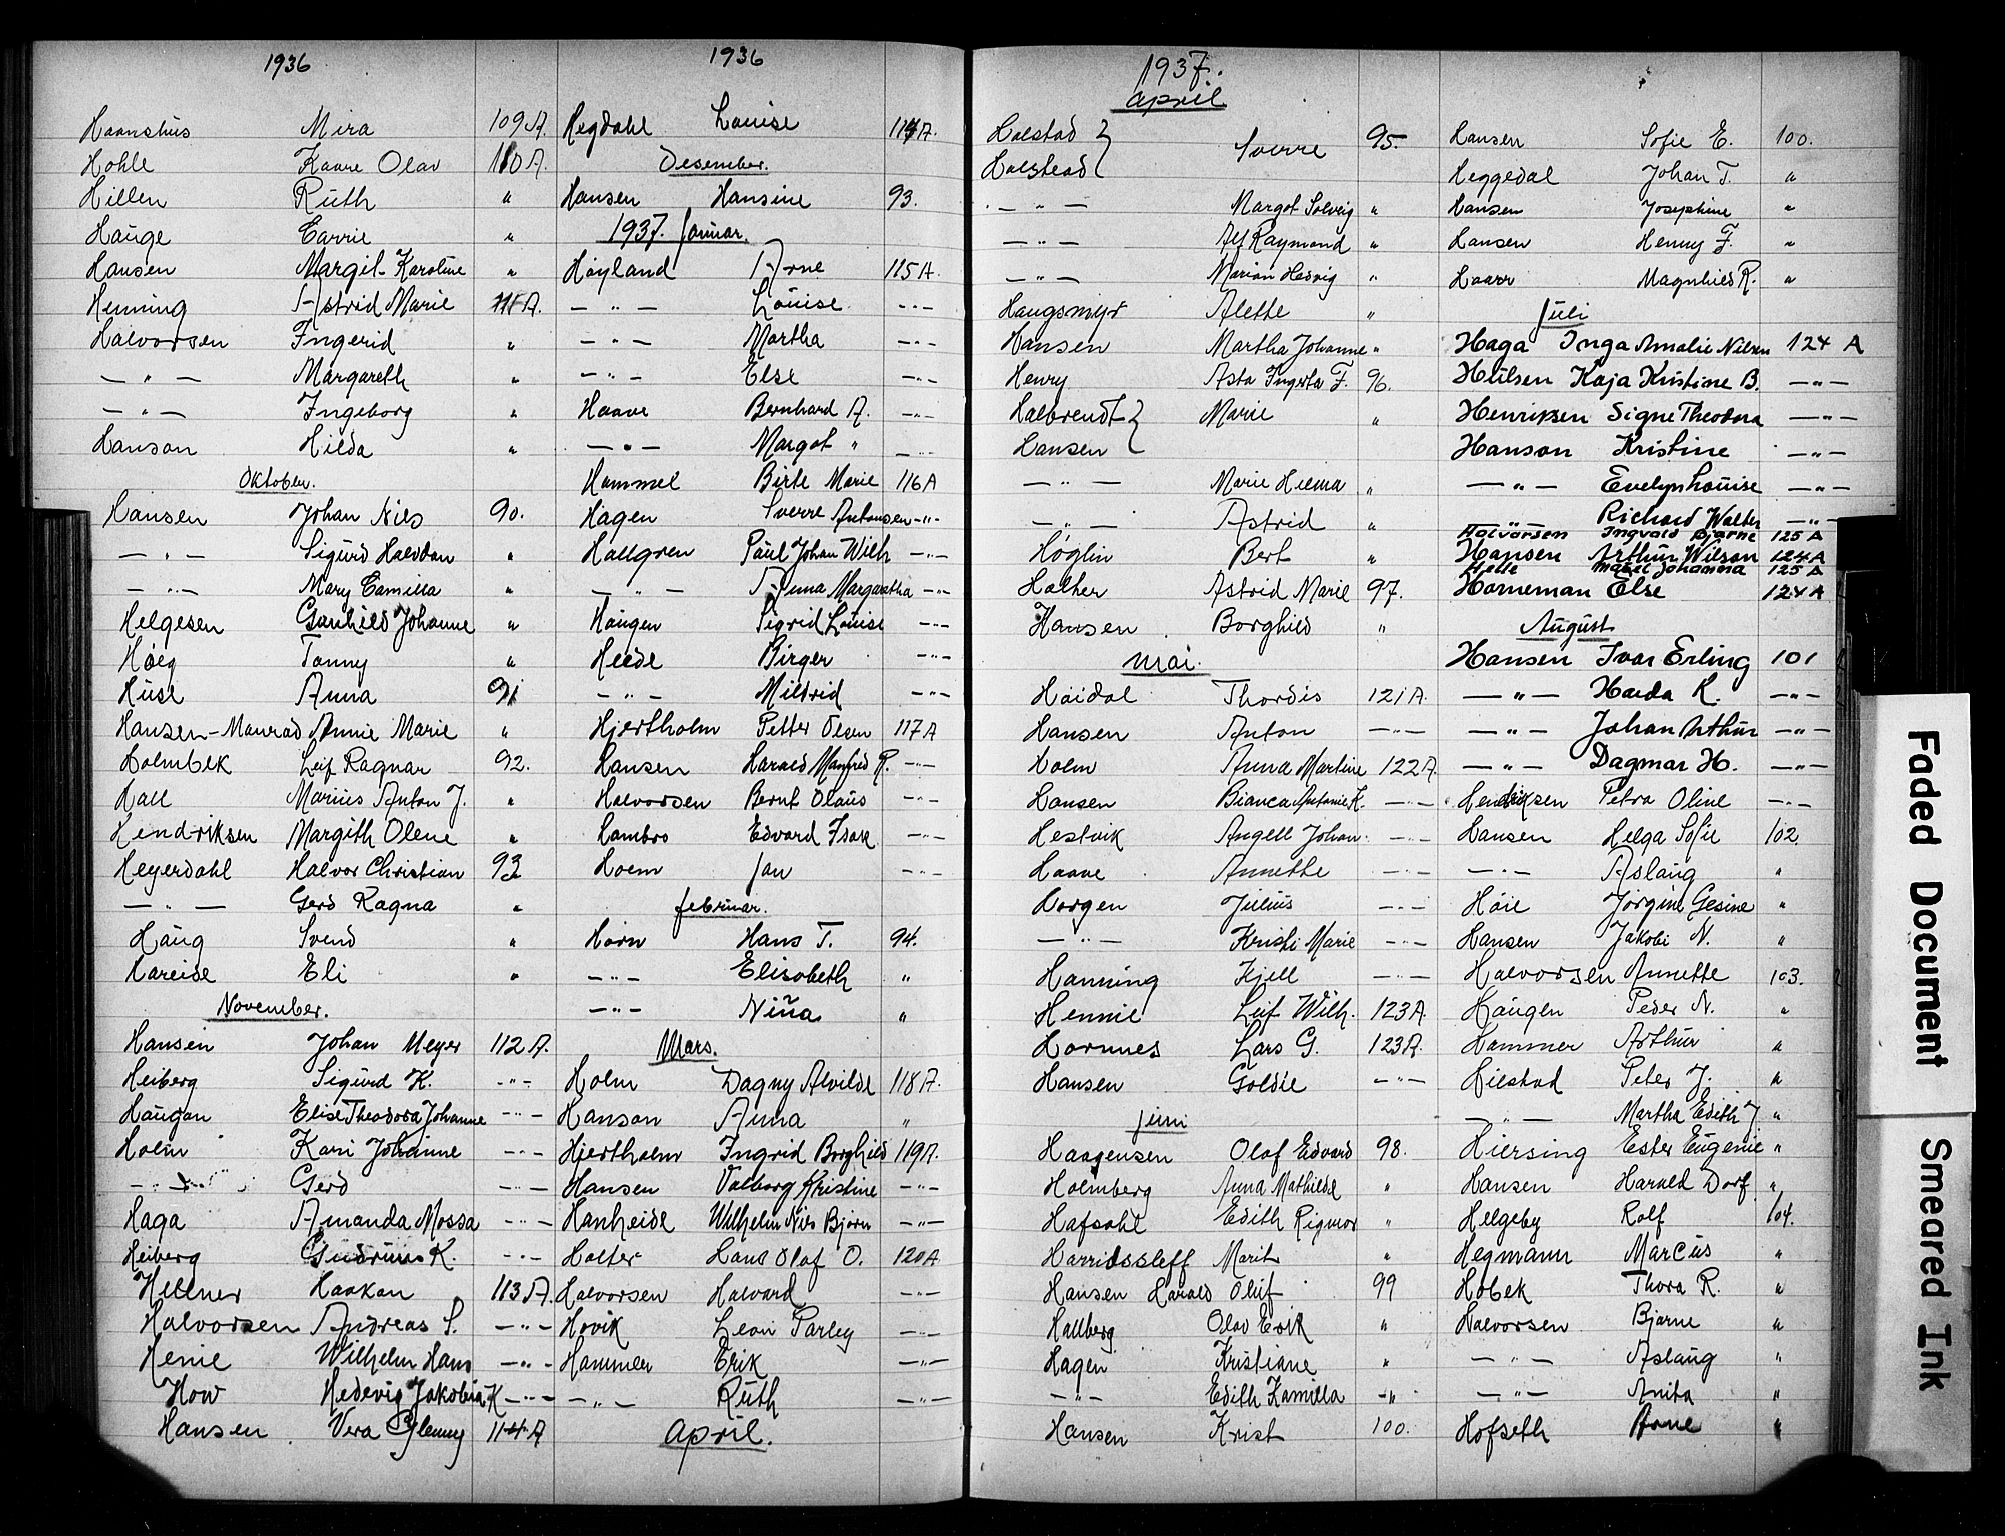 1936
Haanshus Mira 109 A.
Hohle Kaare Olav 110 A.
Hillen Ruth "
Hauge Carrie "
Hansen Margit Karoline "
Henning Astrid Marie 111 A.
Halvorsen Ingerid "
— " — Margareth "
— " — Ingeborg "
Hanson Hilda "
Oktober.
Hansen Johan Nils 90.
— " — Sigurd Halvdan "
— " — Mary Camilla "
Helgesen Gunhild Johanne "
Høeg Tanny "
Huse Anna 91
Hansen-Manrad Annie Marie "
Holmbek Leif Ragnar 92.
Hall Marius Anton J. "
Hendriksen Margith Olene "
Heyerdahl Halvor Christian 93
— " — Gerd Ragna "
Haug Svend "
Hareide Eli "
November.
Hansen Johan Meyer 112 A.
Heiberg Sigurd K. — " —
Haugan Elise Theodora Johanne — " —
Holm Kari Johanne — " —
— " — Gerd — " —
Haga Amanda Mossa — " —
Heiberg Gudrun K. — " —
Hellner Haakon 113 A.
Halvorsen Andreas S. — " —
Henie Wilhelm Hans — " —
How Hedevig Jakobia K — " —
Hansen Vera Glenny 114 A
1936
Hegdahl Louise 114 A.
Desember.
Hansen Hansine 93.
1937. Januar.
Høyland Arne 115 A.
— " — Louise — " —
— " — Martha — " —
— " — Else — " —
Haave Bernhard A. — " —
— " — Margot " — " —
Hammel Birte Marie 116 A
Hagen Sverre Antonsen — " —
Hallgren Paul Johan Wilh — " —
— " — Anna Margaretha — " —
Haugen Sigrid Louise — " —
Heede Birger — " —
— " — Mildrid — " —
Hjertholm Petter Olsen 117 A
Hansen Harald Manfred R. — " —
Halvorsen Bernt Olaus — " —
Hambro Edvard Isak — " —
Holm Jan — " —
Februar.
Horn Hans T. 94.
— " — Elisabeth "
— " — Nina "
Mars.
Holm Dagny Alvilde 118 A.
Hanson Anna "
Hjertholm Ingrid Borghild 119 A.
Hansen Valborg Khristine — " —
Hanheide Wilhelm Nils Bjørn — " —
Holter Hans Olaf O. 120 A
Halvorsen Halvard — " —
Hovik Leon Parley — " —
Hammer Erik — " —
— " — Ruth — " —
April.
1937.
April
Halstad } Sverre 95.
Halstead }
— " — Margot Solveig "
— " — Alf Raymond "
— " — Marian Hedvig "
Haugsmyr Alette "
Hansen Martha Johanne "
Henry Asta Ingerta F. 96.
Halbrendt } Marie "
Hansen }
— " — Marie Hilma "
— " — Astrid "
Høglin Bert "
Halher Astrid Marie 97.
Hansen Borghild "
Mai.
Haidal Thordis 121 A.
Hansen Anton — " —
Holm Anna Martine 122 A.
Hansen Bianca Antonie K. — " —
Hestvik Angell Johan — " —
Haave Annette — " —
Horgen Julius — " —
— " — Kristi Marie — " —
Hanning Kjell — " —
Hennie Leif Wilh. 123 A.
Hornnes Lars G. 123 A.
Hansen Goldie — " —
Juni
Haagensen Olaf Edvard 98.
Holmberg Anna Mathilde "
Hafsahl Edith Rigmor "
Harridssleff Marit "
Hansen Harald Oluf 99
Hallberg Olav Erik "
Hagen Kristiane "
— " — Edith Kamilla — " —
Hansen Krist 100.
Hansen Sofie E. 100.
Heggedal Johan T. "
Hansen Josephine "
Hansen Henny F. "
Haarr Magnhild R. "
Juli
Haga Inga Amalie Nilsen 124 A
Hulsen Kaja Kristine B. — " —
Henriksen Signe Theodora — " —
Hanson Kristine — " —
— " — Evelyn Louise — " —
— " — Richard Walter — " —
Halvorsen Ingvald Bjarne 125 A
Hansen Arthur Wilson 124 A
Helle Mabel Johanna 125 A
Horneman Else 124 A
August
Hansen Ivar Erling 101
— " — Harda K. — " —
— " — Johan Arthur — " —
— " — Dagmar H. — " —
Hendriksen Petra Oline — " —
Hansen Helga Sofie 102.
— " — Aslaug "
Høie Jørgine Gesine "
Hansen Jakobi N. "
Halvorsen Annette 103.
Haugen Peder N. "
Hammer Arthur "
Hilstad Peter J. "
— " — Martha Edith J "
Hiersing Ester Eugenie "
Hansen Harald Dorf. "
Helgeby Rolf 104.
Hegmann Marcus "
Hobek Thora R. "
Halvorsen Bjarne "
— " — Aslaug "
— " — Anita "
Hofseth Arne "
Faded Document
Smeared Ink